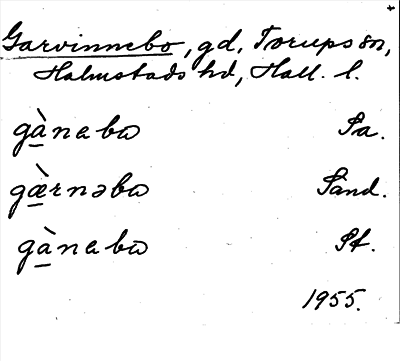 Garvinnebo, gd, Torups sn,
Halmstads hd, Hall. l.
gànabω Pa.
gæ̀rnəbω Sånd.
gànabω Pf.
1955.